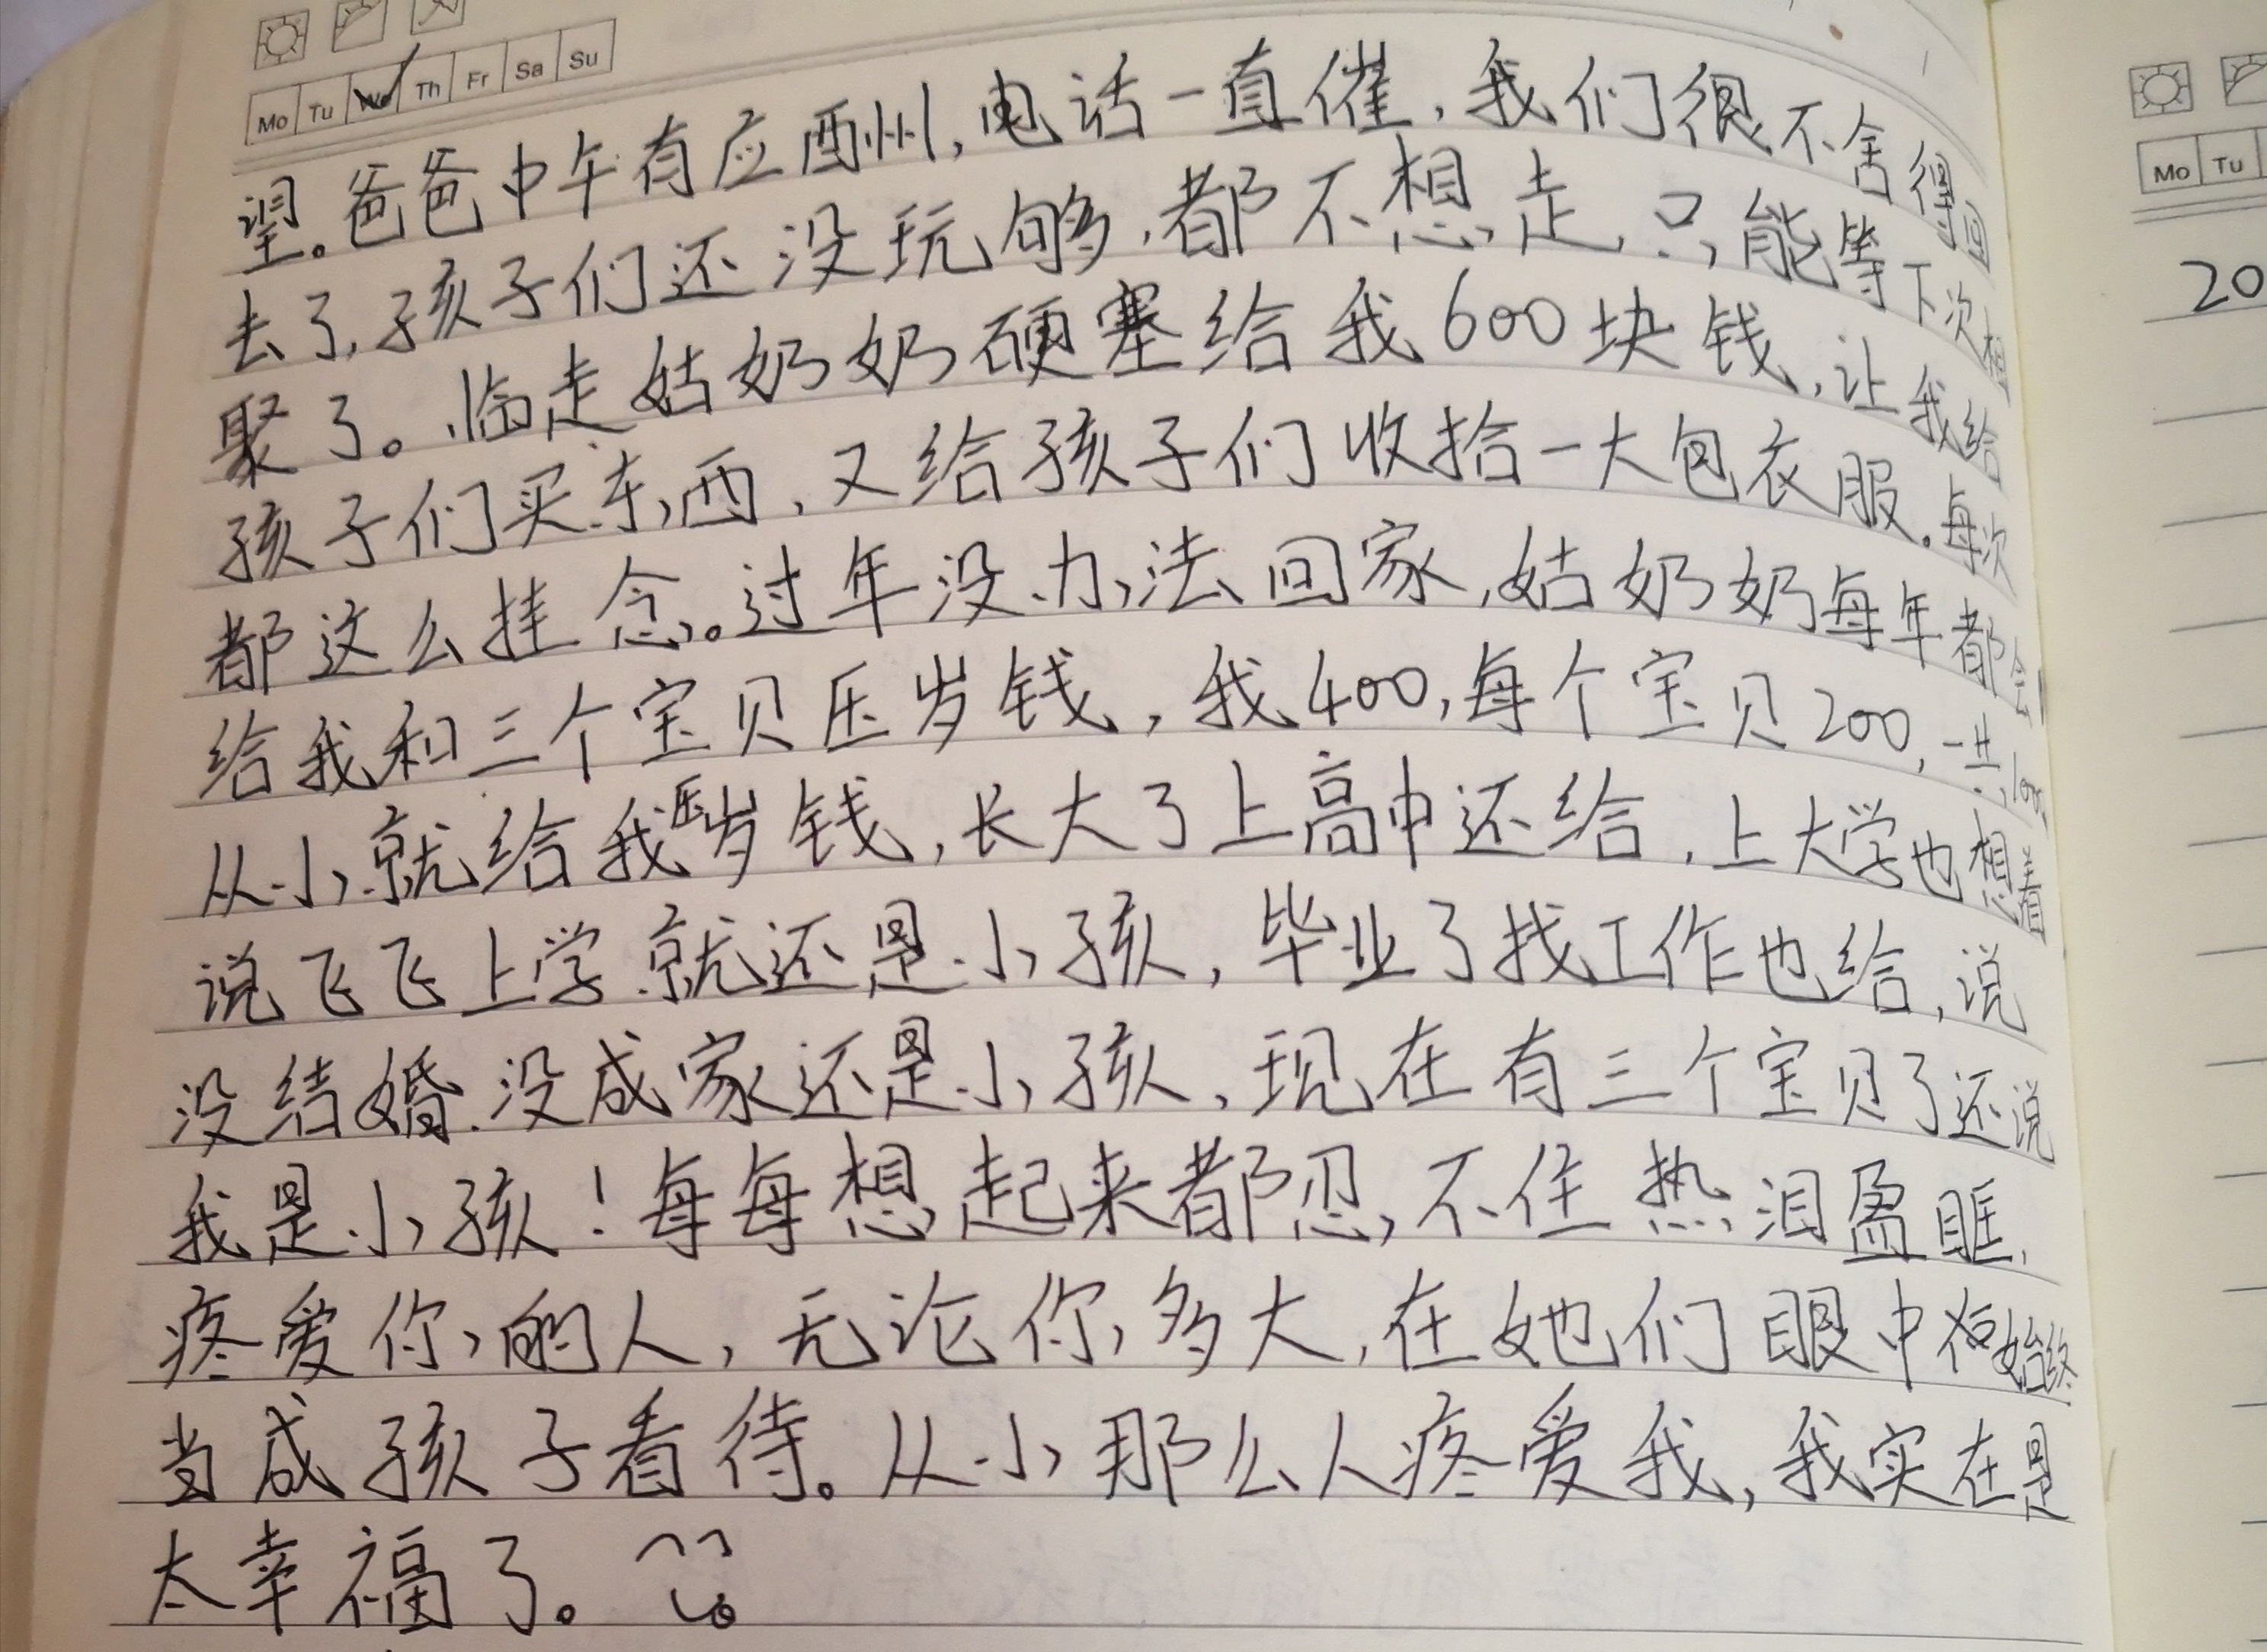 Mo Tu We Th Fr Sa Su
望。爸爸中午有应酬,电话一直催,我们很不舍得回
去了,孩子们还没玩够,都不想走,只能等下次想
聚了。临走姑奶奶硬塞给我600块钱,让我给
孩子们买东西,又给孩子们收拾一大包衣服。每次
都这么挂念。过年没办法回家,姑奶奶每年都会
给我和三个宝贝压岁钱,我400,每个宝贝200,
从小就给我压岁钱,长大了上高中还给,上大学也想着
说飞飞上学就还是小孩,毕业了找工作也给,说
没结婚.没成家还是小孩,现在有三个宝贝了还说
我是小孩!每每想起来都忍不住热泪盈眶,
疼爱你的人,无论你多大,在她们眼中始终
当成孩子看待。从小那么人疼爱我,我实在是
太幸福了。
Mo Tu
20